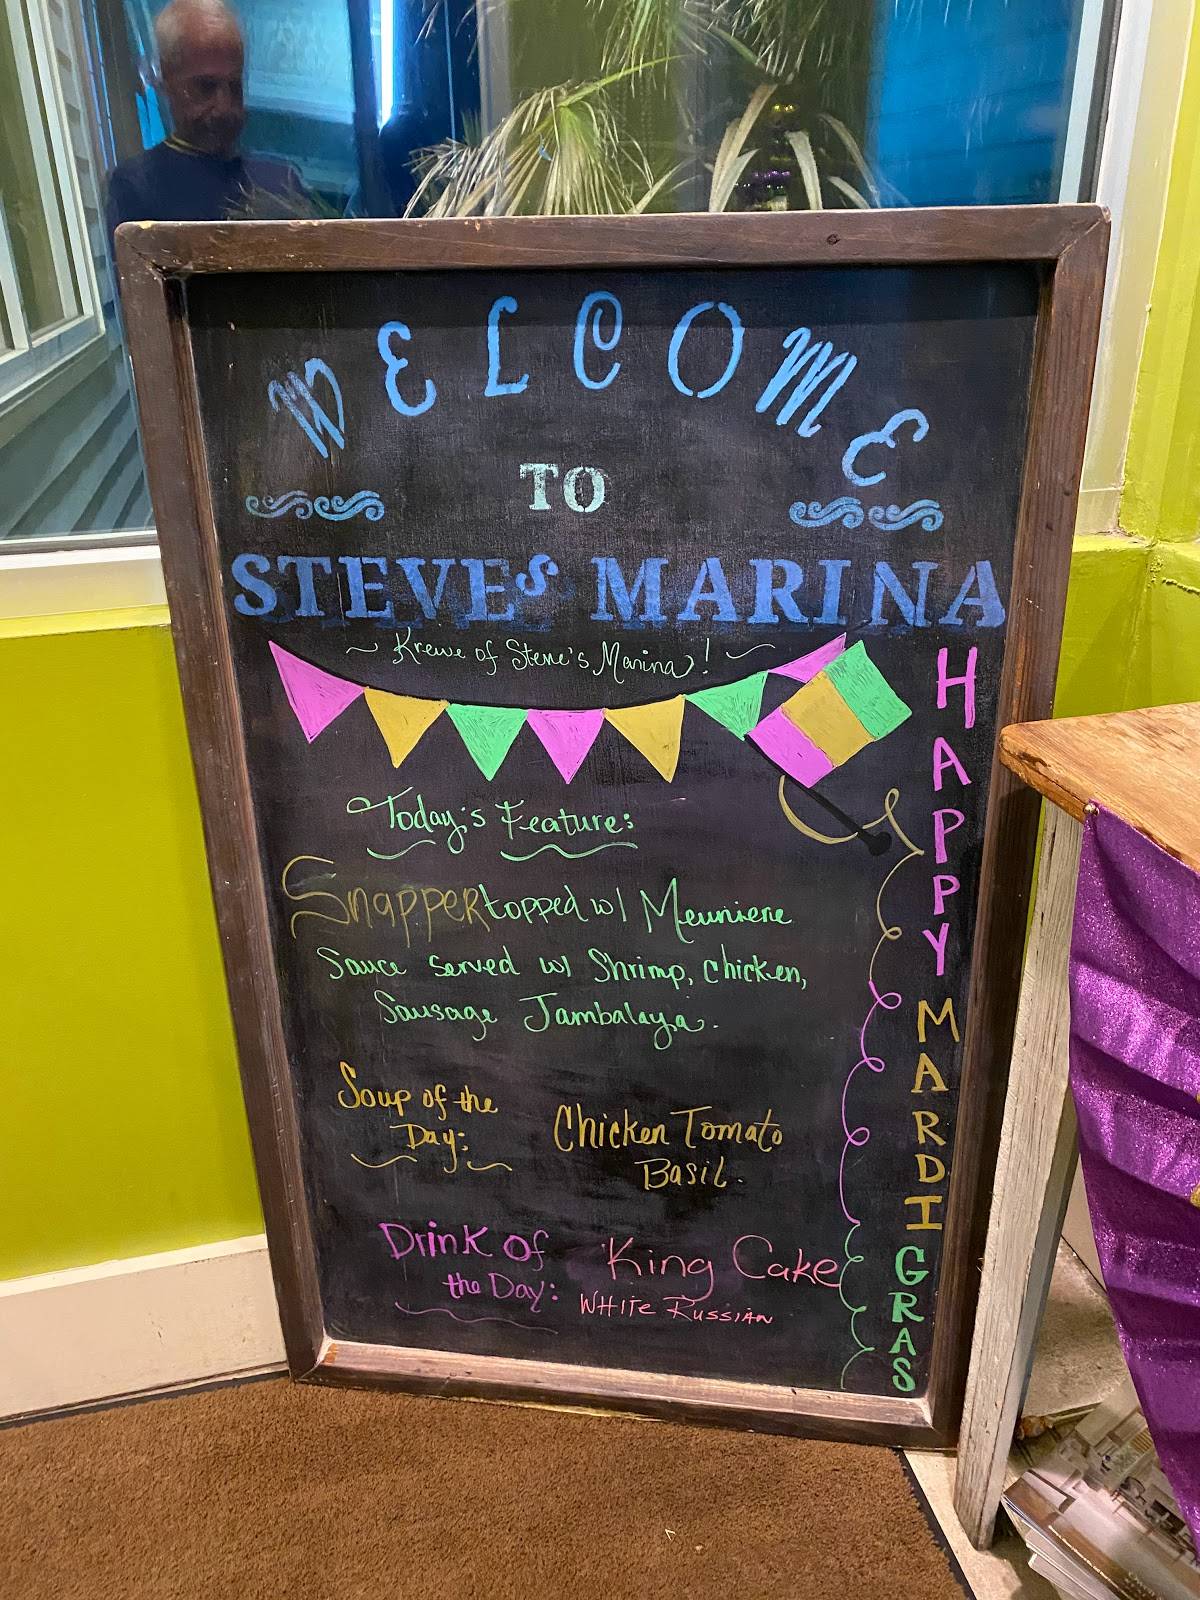 WELCOME
TO
STEVEs MARINA
~ Krewe of Steve's Marina! ~
HAPPY MARDI GRAS
Today's Feature:
Snapper topped w/ Meuniere
Sauce served w/ Shrimp, chicken,
Sausage Jambalaya.
Soup of the
Day:
Chicken Tomato
Basil.
Drink of
the Day:
King Cake
White Russian